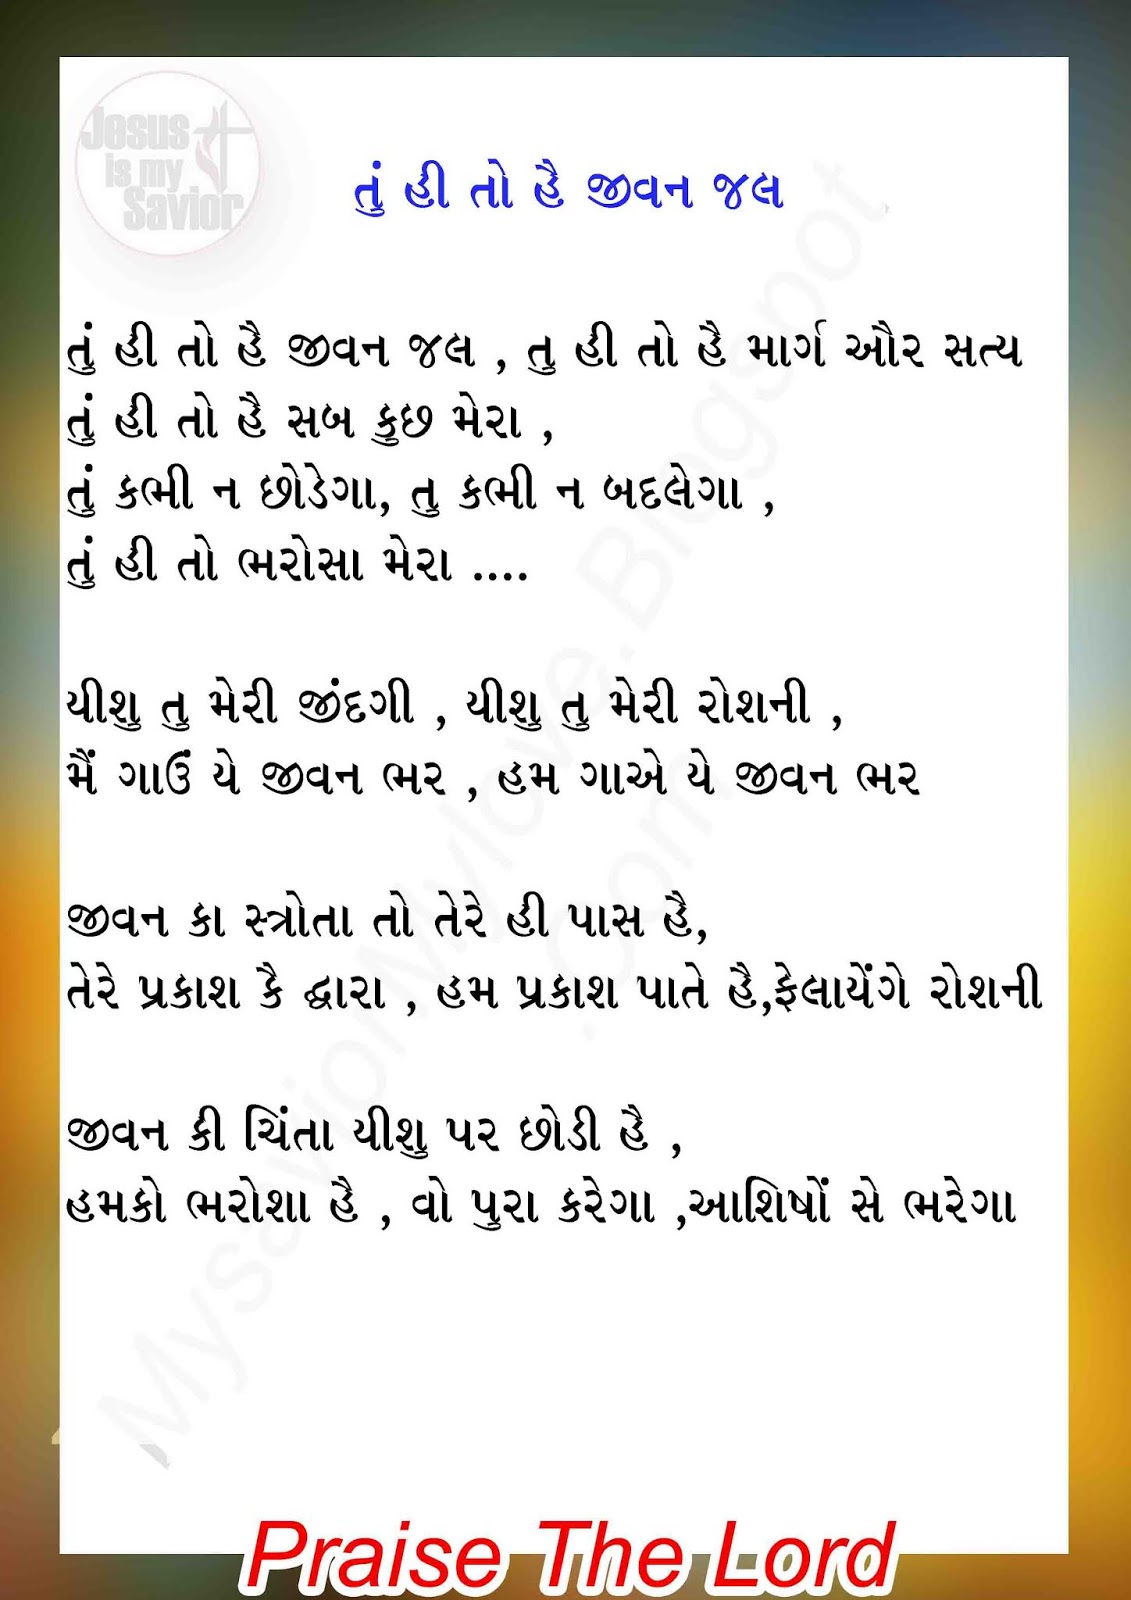 Jesus
is my
Savior
તું હી તો હૈ જીવન જલ
તું હી તો હૈ જીવન જલ , તુ હી તો હૈ માર્ગ ઔર સત્ય
તું હી તો હૈ સબ કુછ મેરા ,
તું કભી ન છોડેગા, તુ કભી ન બદલેગા ,
તું હી તો ભરોસા મેરા ....
યીશુ તુ મેરી જીંદગી , યીશુ તુ મેરી રોશની ,
મૈં ગાઉં યે જીવન ભર , હમ ગાએ યે જીવન ભર
જીવન કા સ્ત્રોતા તો તેરે હી પાસ હૈ,
તેરે પ્રકાશ કૈ દ્વારા , હમ પ્રકાશ પાતે હૈ,ફેલાયેંગે રોશની
જીવન કી ચિંતા યીશુ પર છોડી હૈ ,
હમકો ભરોશા હૈ , વો પુરા કરેગા ,આશિષોં સે ભરેગા
MysaviorMylove.Blogspot
.Com
Praise The Lord